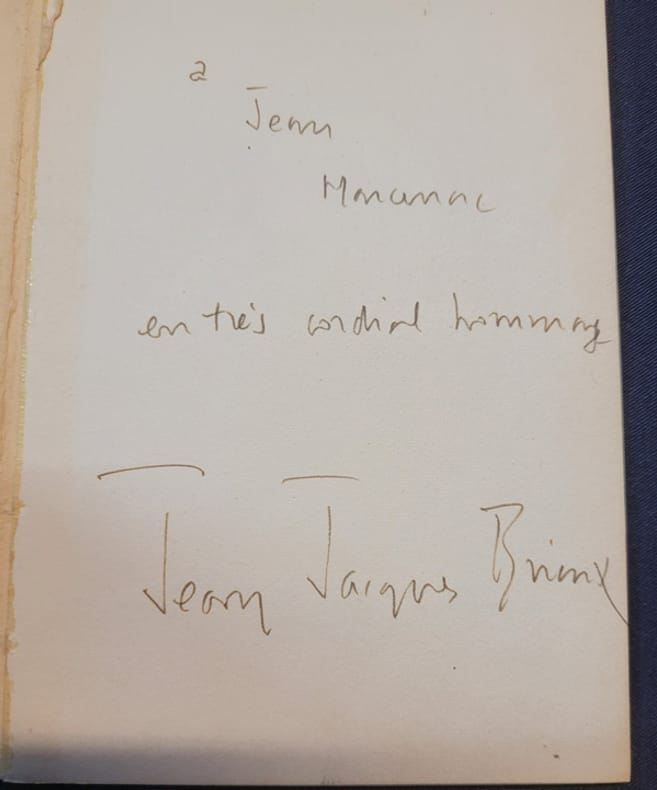 a
Jean
Marcenac
en très cordial hommage
Jean Jacques Brieux